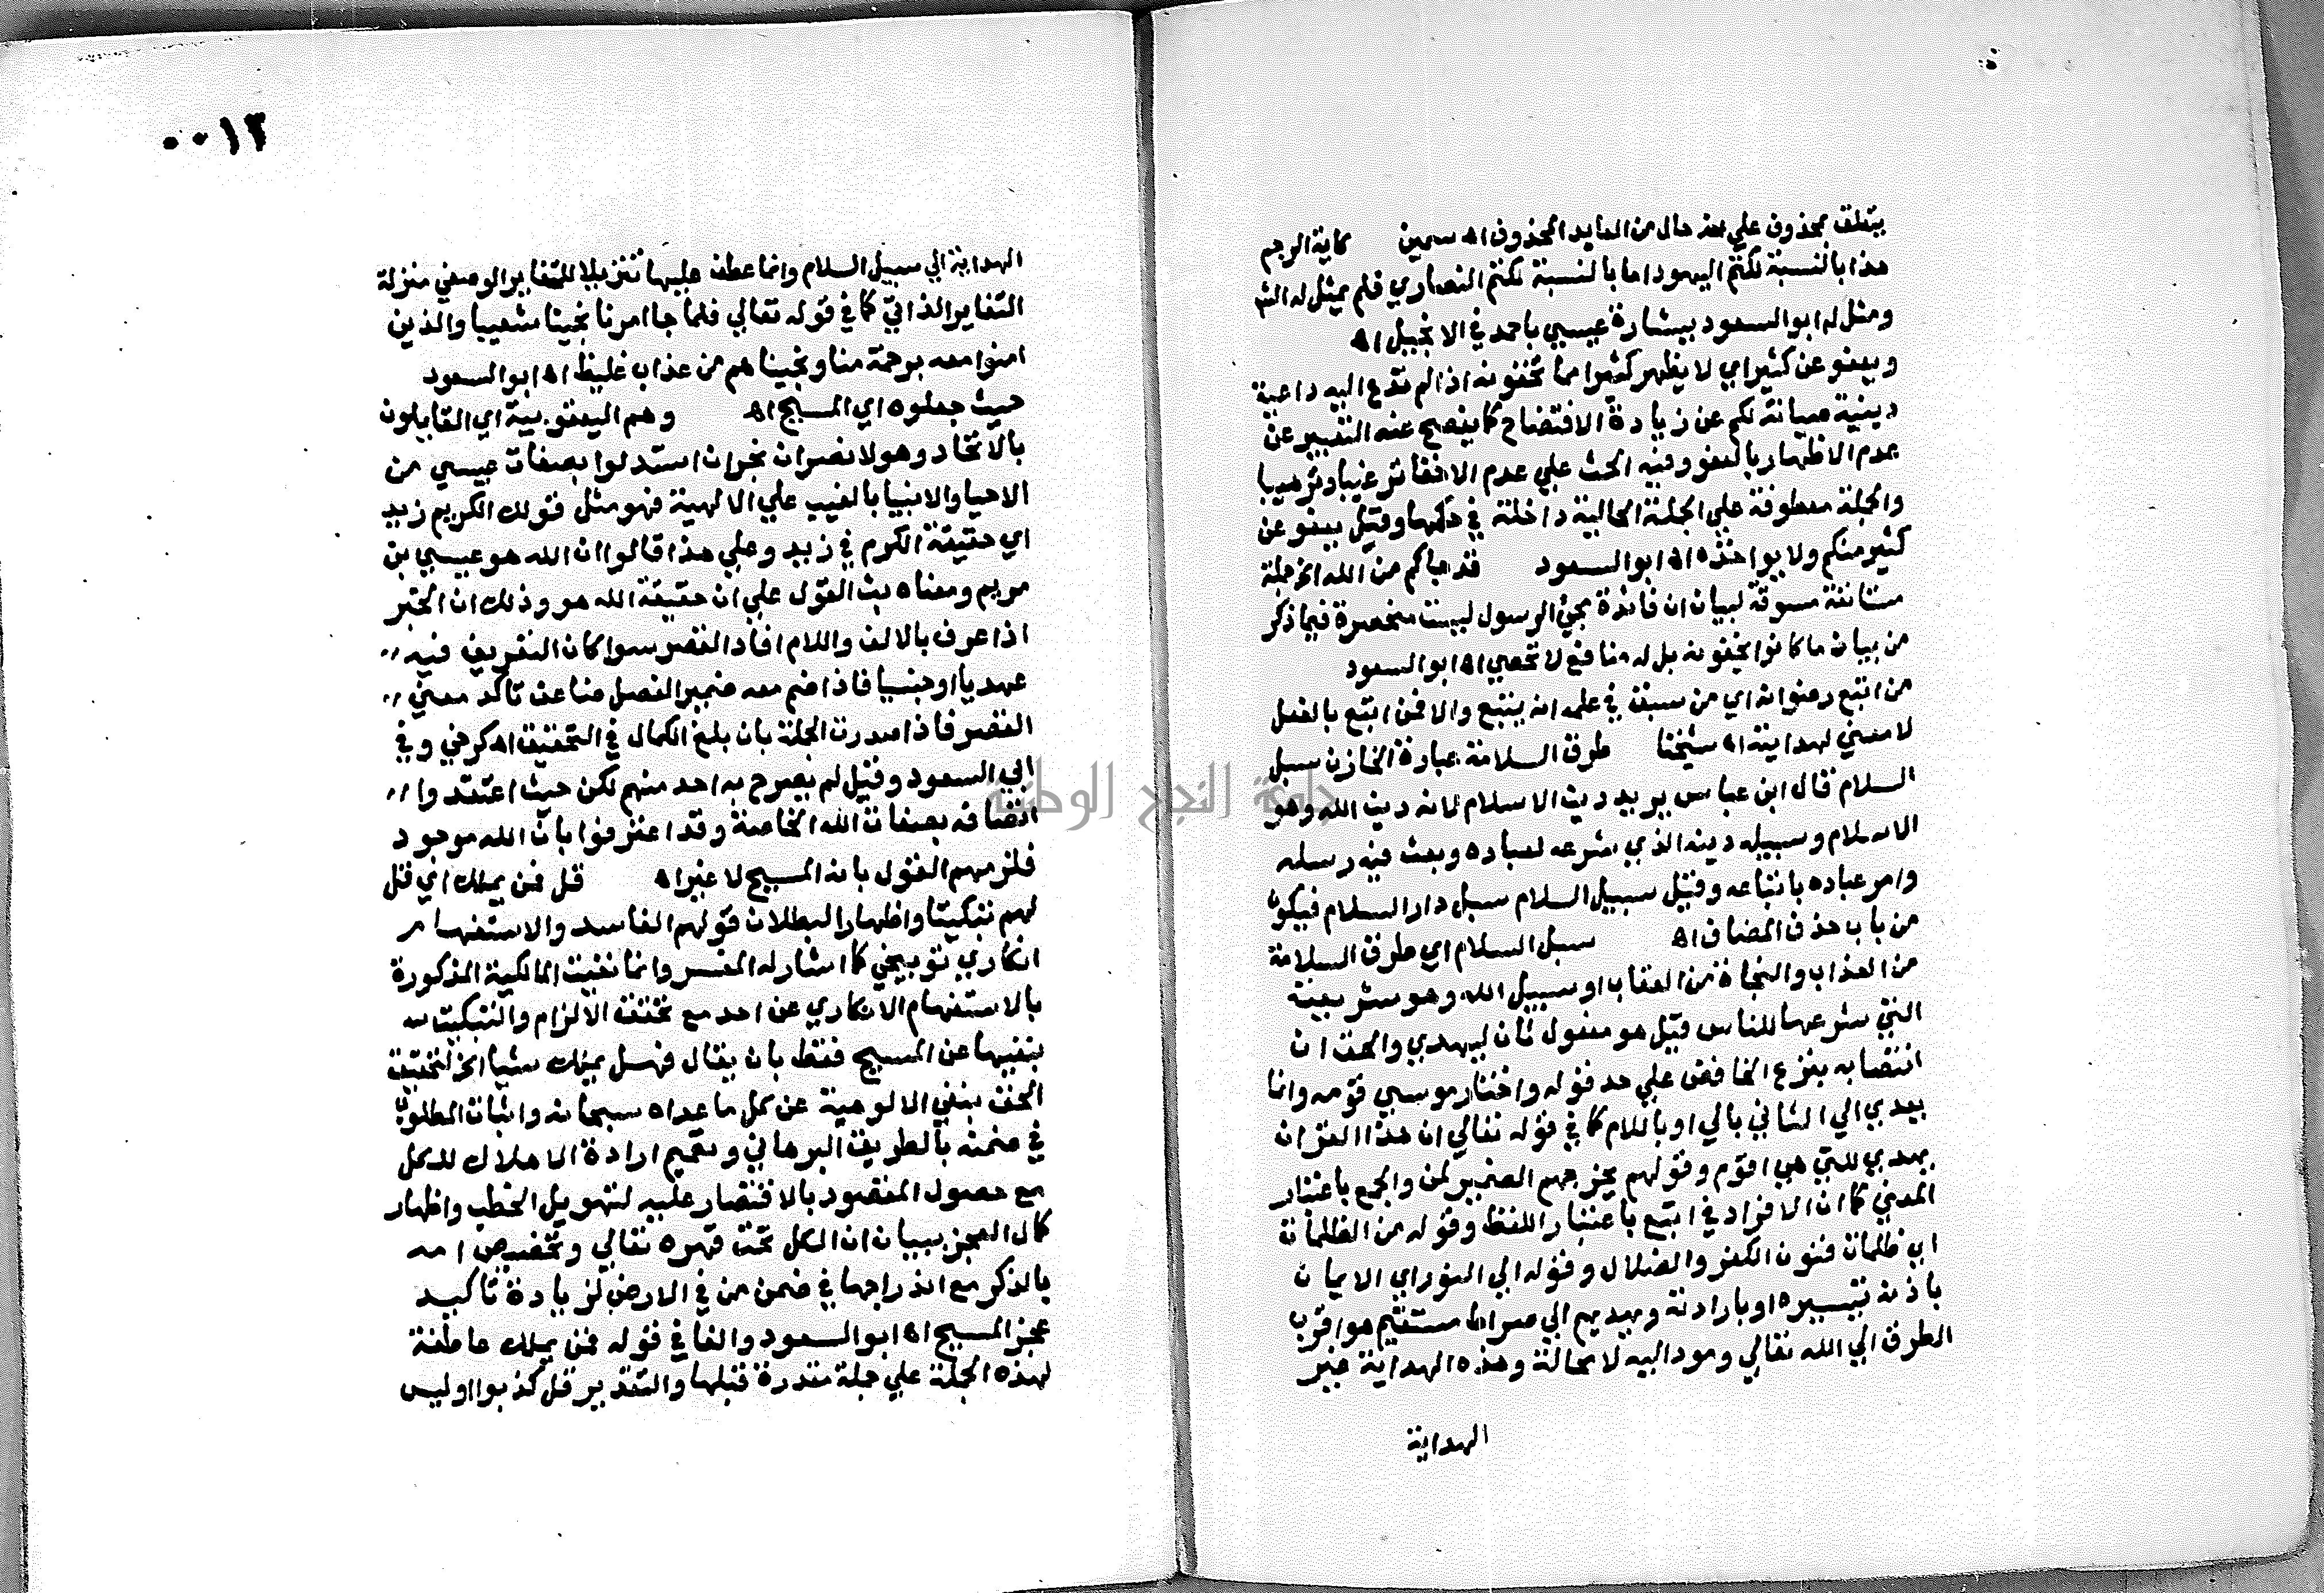 يتعلق بمحذوف علي انه حال من العايد المحذوف اه سمين كاية الرجم
هذا بالنسبة لكتم اليهود اما بالنسبة لكتم النصاري فلم يمثل له الش
ومثل له ابو السعود ببشارة عيسي باحمد في الانجيل اه
ويعفو عن كثير اي لا يظهر كثيرا مما تخفونه اذا لم تدع اليه داعية
دينية صيانة لكم عن زيادة الافتضاح كما يفصح عنه التعبير عن
عدم الاظهار بالعفو وفيه الحث علي عدم الاخفا ترغيبا وترهيبا
والجملة معطوفة علي الجملة الحالية داخلة في حكمها وقيل يعفو عن
كثير منكم ولا يواخذه اه ابو السعود قد جاكم من الله الخ جملة
مستانفة مسوقة لبيان ان فائدة مجئ الرسول ليست منحصرة فيما ذكر
من بيان ما كانوا يخفونه بل له منافع لا تحصي اه ابو السعود
من اتبع رضوانه اي من سبق في علمه انه يتبع والا فمن اتبع بالفعل
لا معني لهدايته اه شيخنا طرق السلامة عبارة الخازن سبل
السلام قال ابن عباس يريد دين الاسلام لانه دين الله وهو
الاسلام وسبيله دينه الذي شرعه لعباده وبعث فيه رسله
وامر عباده باتباعه وقيل سبيل السلام سبل دار السلام فيكون
من باب حذف المضاف اه سبل السلام اي طرق السلامة
من العذاب والنجاة من العقاب او سبيل الله وهو شريعته
التي شرعها للناس قيل هو مفعول ثان ليهدي والحق ان
انتصابه بنزع الخافض علي حد قوله واختار موسي قومه وانما
يعدي الي الثاني بالي او باللام كما في قوله تعالي ان هذا القران
يهدي للتي هي اقوم وقولهم يخرجهم الضمير لمن والجمع باعتبار
المعني كما ان الافراد في اتبع باعتبار اللفظ وقوله من الظلمات
اي ظلمات فنون الكفر والضلال وقوله الي النور اي الايمان
باذنه تيسيره او بارادته ويهديهم الي صراط مستقيم هو اقرب
الطرق الي الله تعالي ومود اليه لا محالة وهذه الهداية عين
الهداية
٠٠١٣
الهداية الي سبيل السلام وانما عطف عليها تنزيلا للتغاير الوصفي منزلة
التغاير الذاتي كما في قوله تعالي فلما جا امرنا نجينا شعيبا والذين
امنوا معه برحمة منا ونجيناهم من عذاب غليظ اه ابو السعود
حيث جعلوه اي المسيح اه وهم اليعقوبية اي القايلون
بالاتحاد وهولا نصران نجران استدلوا بصفات عيسي من
الاحيا والانبيا بالغيب علي الالهية فهو مثل قولك الكريم زيد
اي حقيقة الكرم في زيد وعلي هذا قالوا ان الله هو عيسي بن
مريم ومعناه بت القول علي ان حقيقة الله هو وذلك ان الخبر
اذا عرف بالالف واللام افاد القصر سوا كان التعريف فيه
عهديا او جنسيا فاذا ضم معه ضمير الفصل ضاعف تاكد معني
القصر فاذا صدرت الجملة بان بلغ الكمال في التحقيق اه كرخي وفي
ابي السعود وقيل لم يصرح به احد منهم لكن حيث اعتقدوا
اتصافه بصفات الله الخاصة وقد اعترفوا بان الله موجود
فلزمهم القول بانه المسيح لا غير اه قل فمن يملك اي قل
لهم تبكيتا واظهارا لبطلان قولهم الفاسد والاستفهام
انكاري توبيخي كما اشار له المفسر وانما نفيت المالكية المذكورة
بالاستفهام الانكاري عن احد مع تحقق الالزام والتبكيت
بنفيها عن المسيح فقط بان يقال فهل يملك شيا الخ لتحقيق
الحق بنفي الالوهية عن كل ما عداه سبحانه واثبات المطلوب
في ضمنه بالطريق البرهاني وتعميم ارادة الاهلاك للكل
مع حصول المقصود بالاقتصار عليه لتهويل الخطب واظهار
كمال العجز ببيان ان الكل تحت قهره تعالي وتخصيص امه
بالذكر مع اندراجها في ضمن من في الارض لزيادة تاكيد
عجز المسيح اه ابو السعود والفا في قوله فمن يملك عاطفة
لهذه الجملة علي جملة مقدرة قبلها والتقدير قل كذبوا اوليس
جامعة النجاح الوطنية